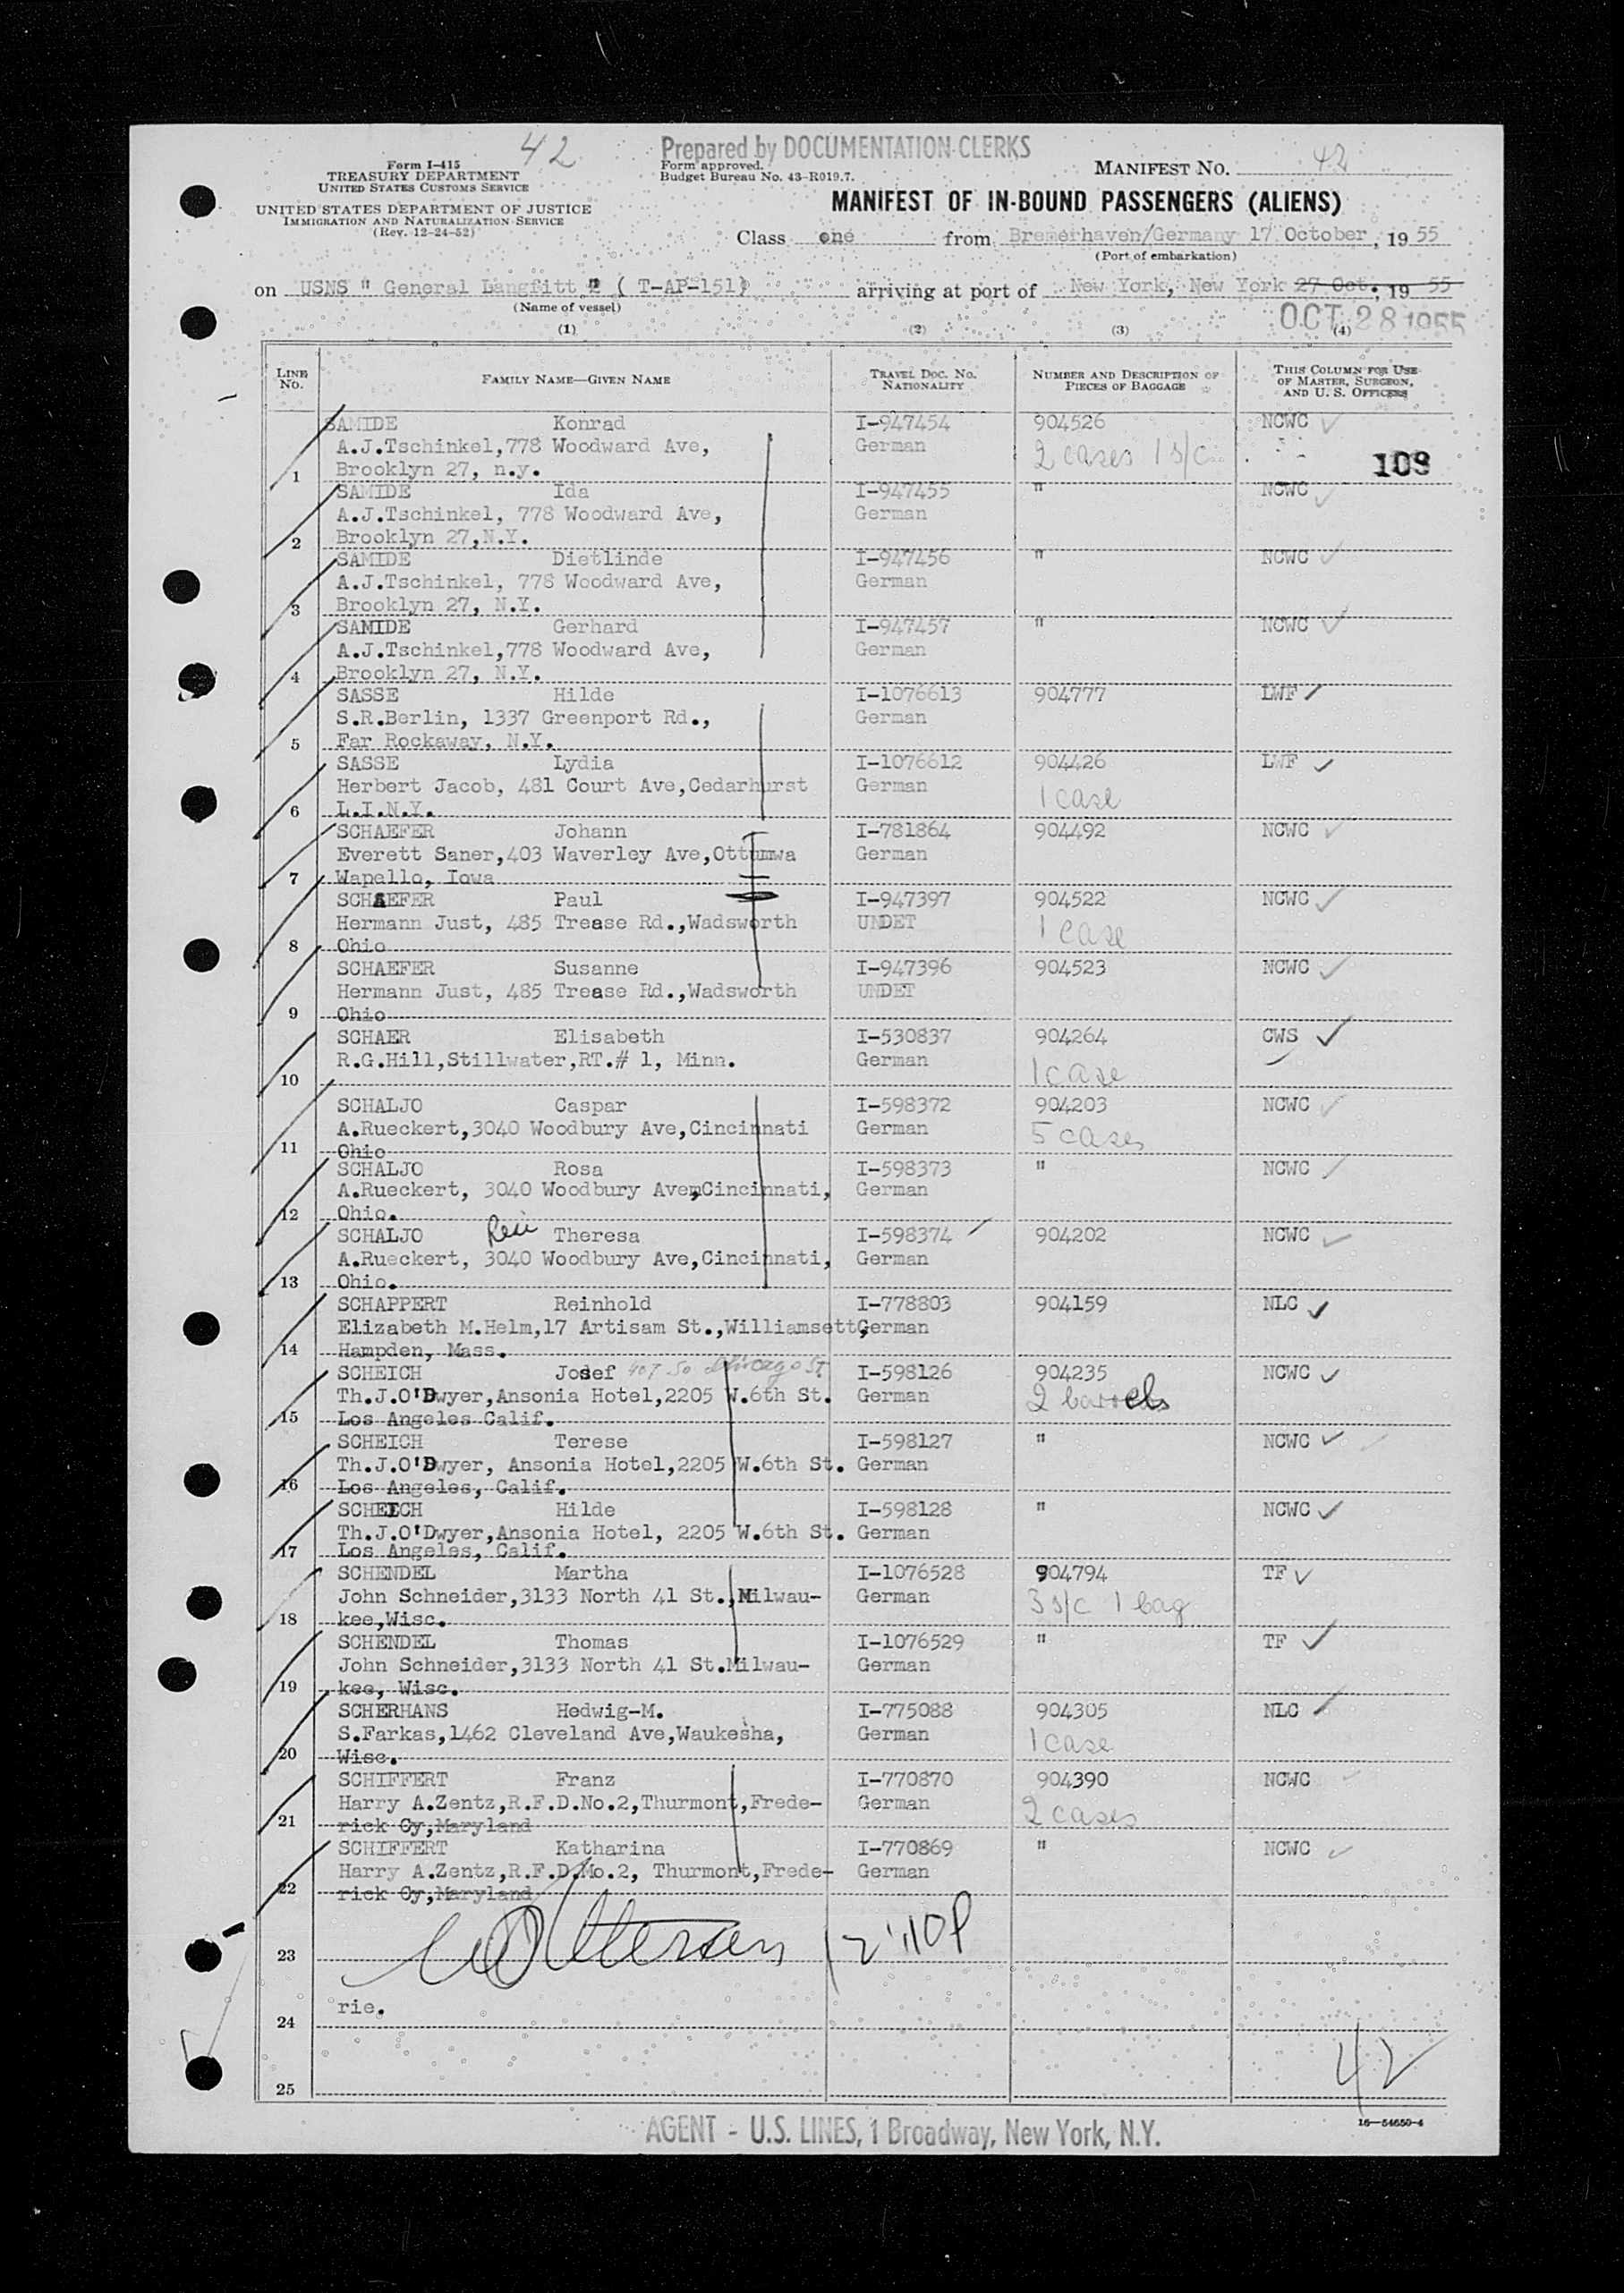 42
Prepared by DOCUMENTATION CLERKS
Form I-415
TREASURY DEPARTMENT
UNITED STATES CUSTOMS SERVICE
Form approved.
Budget Bureau No. 43-R019.7.
MANIFEST NO. 42
UNITED STATES DEPARTMENT OF JUSTICE
IMMIGRATION AND NATURALIZATION SERVICE
(Rev. 12-24-52)
MANIFEST OF IN-BOUND PASSENGERS (ALIENS)
Class one from Bremerhaven/Germany 17 October, 19 55
(Port of embarkation)
on USNS " General Langfitt " ( T-AP-151) arriving at port of New York, New York 27 Oct., 19 55
(Name of vessel)
OCT 28 1955
(1) (2) (3) (4)
LINE NO. FAMILY NAME—GIVEN NAME TRAVEL DOC. NO. NATIONALITY NUMBER AND DESCRIPTION OF PIECES OF BAGGAGE THIS COLUMN FOR USE OF MASTER, SURGEON, AND U. S. OFFICERS
SAMIDE Konrad I-947454 904526 NCWC
A.J.Tschinkel,778 Woodward Ave, German 2 cases 1 s/c 109
1 Brooklyn 27, n.y.
SAMIDE Ida I-947455 " NCWC
A.J.Tschinkel, 778 Woodward Ave, German
2 Brooklyn 27,N.Y.
SAMIDE Dietlinde I-947456 " NCWC
A.J.Tschinkel, 778 Woodward Ave, German
3 Brooklyn 27, N.Y.
SAMIDE Gerhard I-947457 " NCWC
A.J.Tschinkel,778 Woodward Ave, German
4 Brooklyn 27, N.Y.
SASSE Hilde I-1076613 904777 LWF
S.R.Berlin, 1337 Greenport Rd., German
5 Far Rockaway, N.Y.
SASSE Lydia I-1076612 904426 LWF
Herbert Jacob, 481 Court Ave,Cedarhurst German 1 case
6 L.I.N.Y.
SCHAEFER Johann I-781864 904492 NCWC
Everett Saner,403 Waverley Ave,Ottumwa German
7 Wapello, Iowa
SCHAEFER Paul I-947397 904522 NCWC
Hermann Just, 485 Trease Rd.,Wadsworth UNDET 1 case
8 Ohio
SCHAEFER Susanne I-947396 904523 NCWC
Hermann Just, 485 Trease Rd.,Wadsworth UNDET
9 Ohio
SCHAER Elisabeth I-530837 904264 CWS
R.G.Hill,Stillwater,RT.# 1, Minn. German 1 case
10
SCHALJO Caspar I-598372 904203 NCWC
A.Rueckert,3040 Woodbury Ave,Cincinnati German 5 cases
11 Ohio
SCHALJO Rosa I-598373 " NCWC
A.Rueckert, 3040 Woodbury Ave,Cincinnati, German
12 Ohio.
SCHALJO Theresa I-598374 904202 NCWC
A.Rueckert, 3040 Woodbury Ave,Cincinnati, German
13 Ohio.
SCHAPPERT Reinhold I-778803 904159 NLC
Elizabeth M.Helm,17 Artisam St.,Williamsett, German
14 Hampden, Mass.
SCHEICH Josef 407 So Chicago St. I-598126 904235 NCWC
Th.J.O'Dwyer,Ansonia Hotel,2205 W.6th St. German 2 barrels
15 Los Angeles Calif.
SCHEICH Terese I-598127 " NCWC
Th.J.O'Dwyer, Ansonia Hotel,2205 W.6th St. German
16 Los Angeles, Calif.
SCHEICH Hilde I-598128 " NCWC
Th.J.O'Dwyer,Ansonia Hotel, 2205 W.6th St. German
17 Los Angeles, Calif.
SCHENDEL Martha I-1076528 904794 TF
John Schneider,3133 North 41 St.,Milwau- German 3 s/c 1 bag
18 kee,Wisc.
SCHENDEL Thomas I-1076529 " TF
John Schneider,3133 North 41 St.Milwau- German
19 kee, Wisc.
SCHERHANS Hedwig-M. I-775088 904305 NLC
S.Farkas,1462 Cleveland Ave,Waukesha, German 1 case
20 Wisc.
SCHIFFERT Franz I-770870 904390 NCWC
Harry A.Zentz,R.F.D.No.2,Thurmont,Frede- German 2 cases
21 rick Cy,Maryland
SCHIFFERT Katharina I-770869 " NCWC
Harry A.Zentz,R.F.D.No.2, Thurmont,Frede- German
22 rick Cy,Maryland
23
rie.
24
42
25
16—54650-4
AGENT - U.S. LINES, 1 Broadway, New York, N.Y.